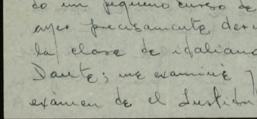 do un pequeño curso de
ayer precisamente
la clase de italiano
Dante; me examiné
exámen de el Instit